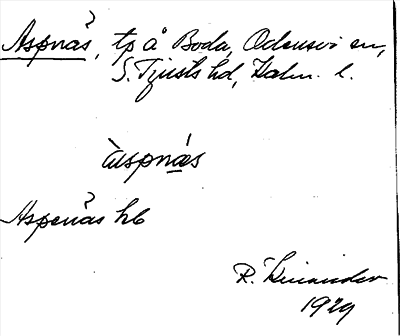 Aspnäs, tp å Boda, Odensvi sn,
S. Tjusts hd, Kalm. l.
àspnæ̀s
Aspenäs hb
R.
1929